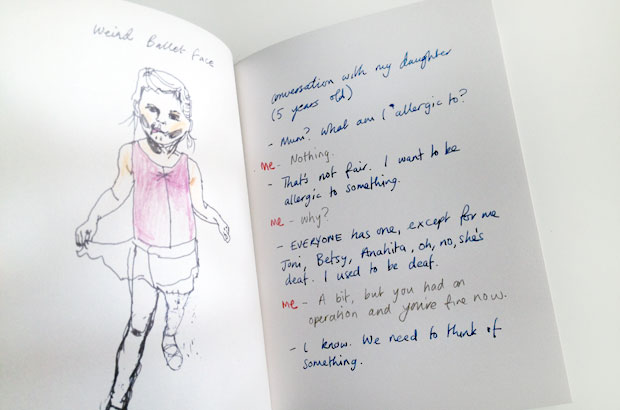 Weird Ballet Face
conversation with my daughter
(5 years old)
- Mum? What am I allergic to?
Me - Nothing.
- That's not fair. I want to be
allergic to something.
Me - why?
- EVERYONE has one, except for me
Joni, Betsy, Anahita, oh, no, she's
deaf. I used to be deaf.
Me - A bit, but you had an
operation and you're fine now.
- I know. We need to think of
something.